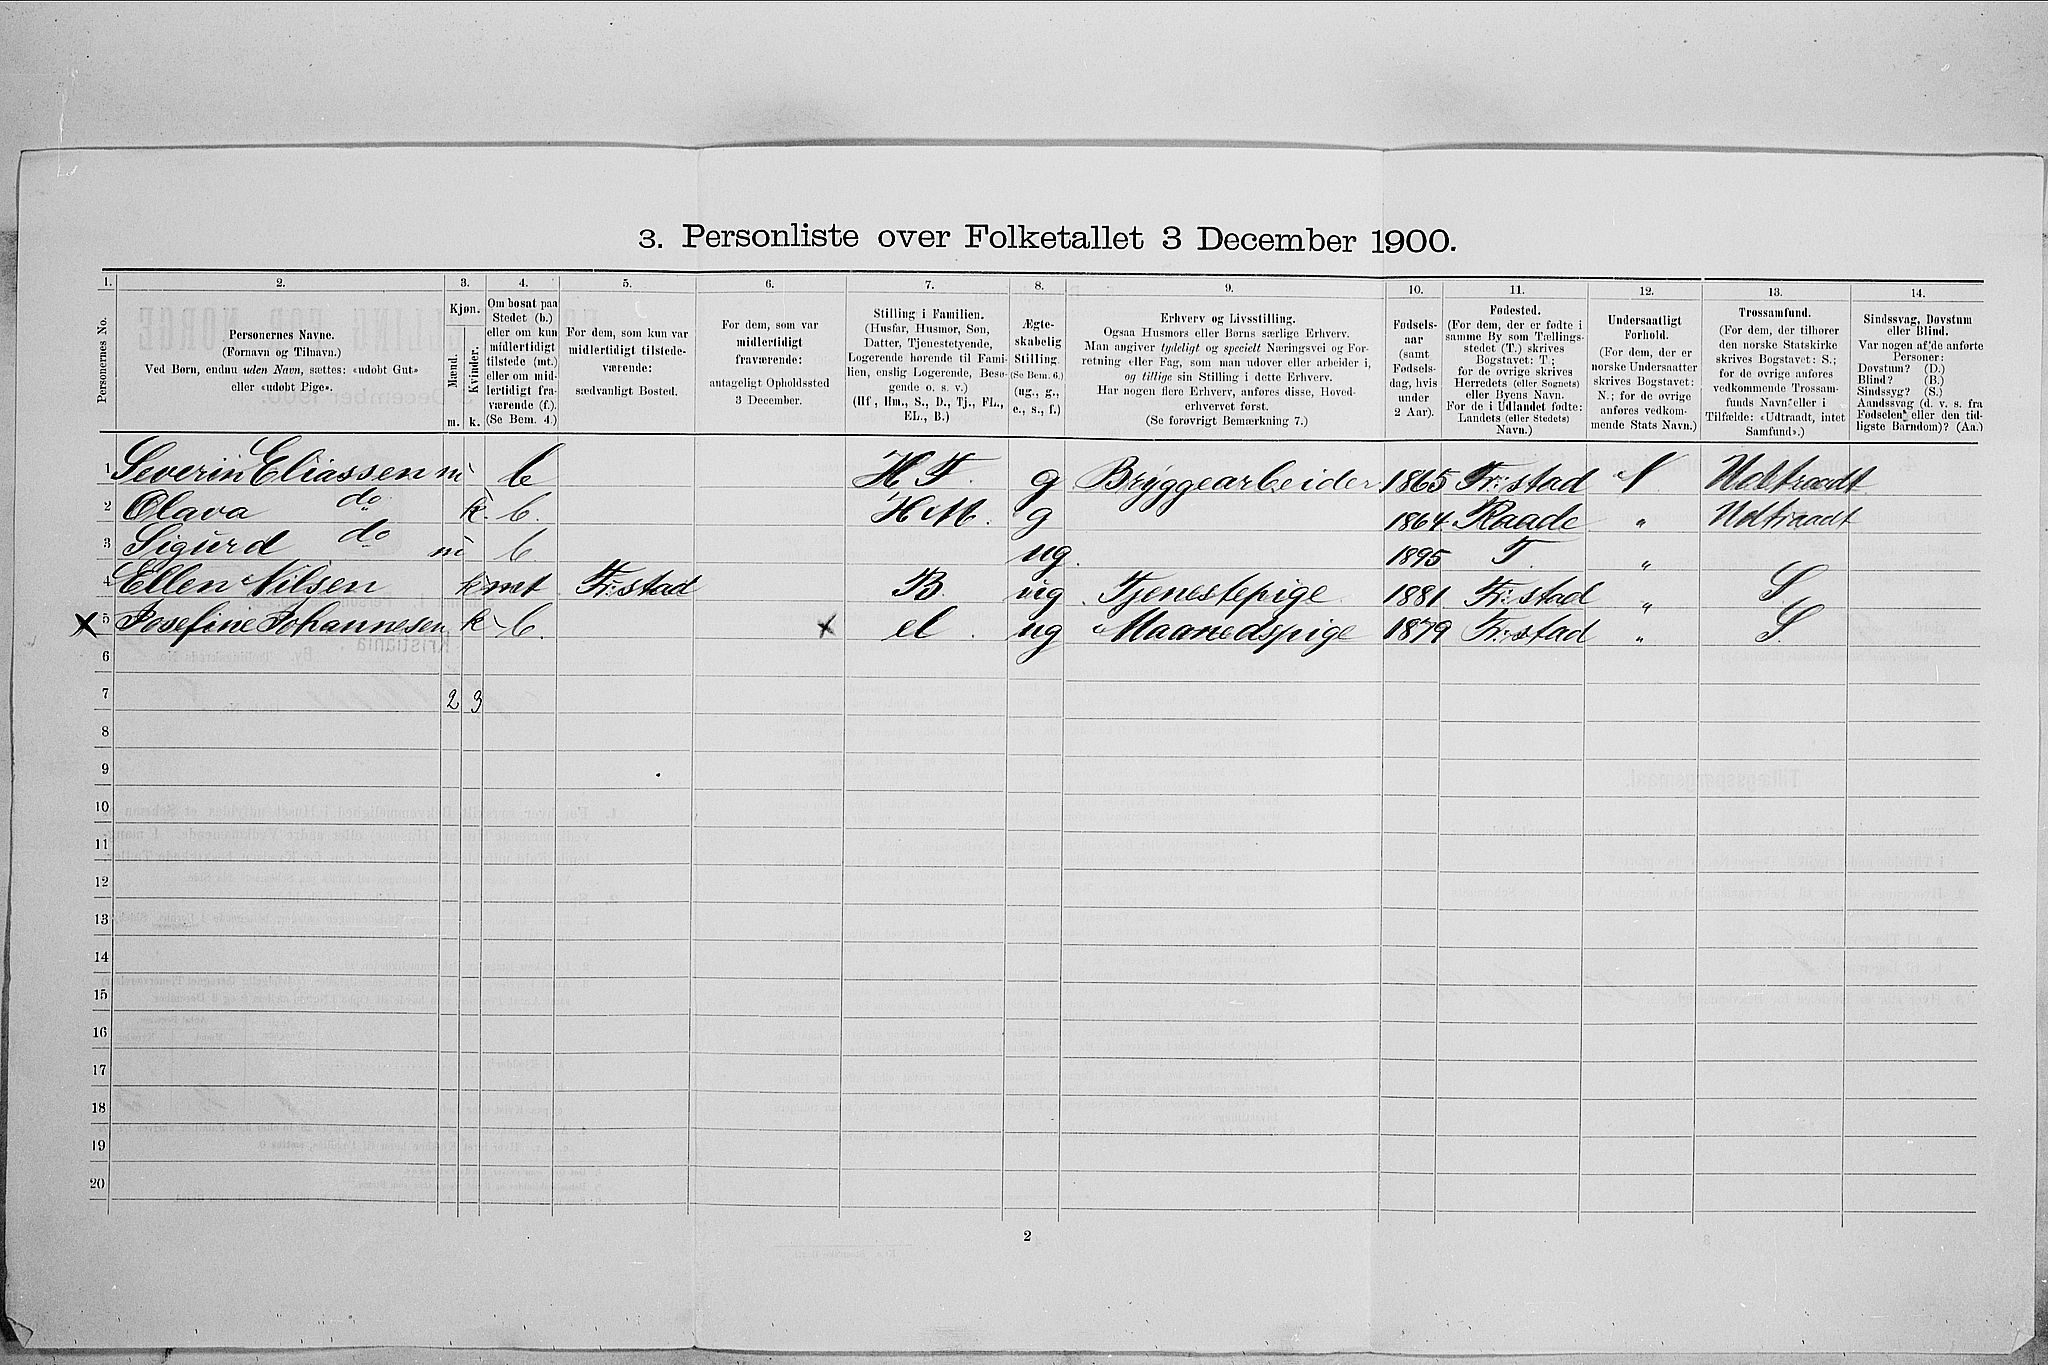 3. Personliste over Folketallet 3 December 1900.
1. 2. 3. 4. 5. 6. 7. 8. 9. 10. 11. 12. 13. 14.
Personernes No.
Personernes Navne.
(Fornavn og Tilnavn.)
Ved Børn, endnu uden Navn, sættes: «udobt Gut»
eller «udobt Pige».
Kjøn.
Mænd. Kvinder.
m. k.
Om bosat paa
Stedet (b.)
eller om kun
midlertidigt
tilstede (mt.)
eller om mid-
lertidigt fra-
værende (f.).
(Se Bem. 4.)
For dem, som kun var
midlertidigt tilstede-
værende:
sædvanligt Bosted.
For dem, som var
midlertidigt
fraværende:
antageligt Opholdssted
3 December.
Stilling i Familien.
(Husfar, Husmor, Søn,
Datter, Tjenestetyende,
Logerende hørende til Fami-
lien, enslig Logerende, Besø-
gende o. s. v.)
(Hf, Hm., S., D., Tj., FL.,
EL., B.)
Ægte-
skabelig
Stilling.
(Se Bem. 6.)
(ug., g.,
e., s., f.)
Erhverv og Livsstilling.
Ogsaa Husmors eller Børns særlige Erhverv.
Man angiver tydeligt og specielt Næringsvei og For-
retning eller Fag, som man udøver eller arbeider i,
og tillige sin Stilling i dette Erhverv.
Har nogen flere Erhverv, anføres disse, Hoved-
erhvervet først.
(Se forøvrigt Bemærkning 7.)
Fødsels-
aar
(samt
Fødsels-
dag, hvis
under
2 Aar).
Fødested.
(For dem, der er fødte i
samme By som Tællings-
stedet (T.) skrives
Bogstavet: T;
for de øvrige skrives
Herredets (eller Sognets)
eller Byens Navn.
For de i Udlandet fødte:
Landets (eller Stedets)
Navn.)
Undersaatligt
Forhold.
(For dem, der er
norske Undersaatter
skrives Bogstavet:
N.; for de øvrige
anføres vedkom-
mende Stats Navn.)
Trossamfund.
(For dem, der tilhører
den norske Statskirke
skrives Bogstavet: S.;
for de øvrige anføres
vedkommende Trossam-
funds Navn eller i
Tilfælde: «Udtraadt, intet
Samfund».)
Sindssvag, Døvstum
eller Blind.
Var nogen af de anførte
Personer:
Døvstum? (D.)
Blind? (B.)
Sindssyg? (S.)
Aandssvag (d. v. s. fra
Fødselen eller den tid-
ligste Barndom)? (Aa.)
1 Severin Eliassen m b H F. g Bryggearbeider 1865 Fr:stad N Udtraadt
2 Olava do k. b. H M. g 1864 Raade " Udtraadt
3 Sigurd do m b ug. 1895 T. "
4 Ellen Nilsen k mt Fr:stad B. ug Tjenestepige 1881 Fr:stad " S
X 5 Josefine Johannesen k b. x el. ug Maanedspige 1879 Fr:stad " S.
6
7 2 3
8
9
10
11
12
13
14
15
16
17
18
19
20
2